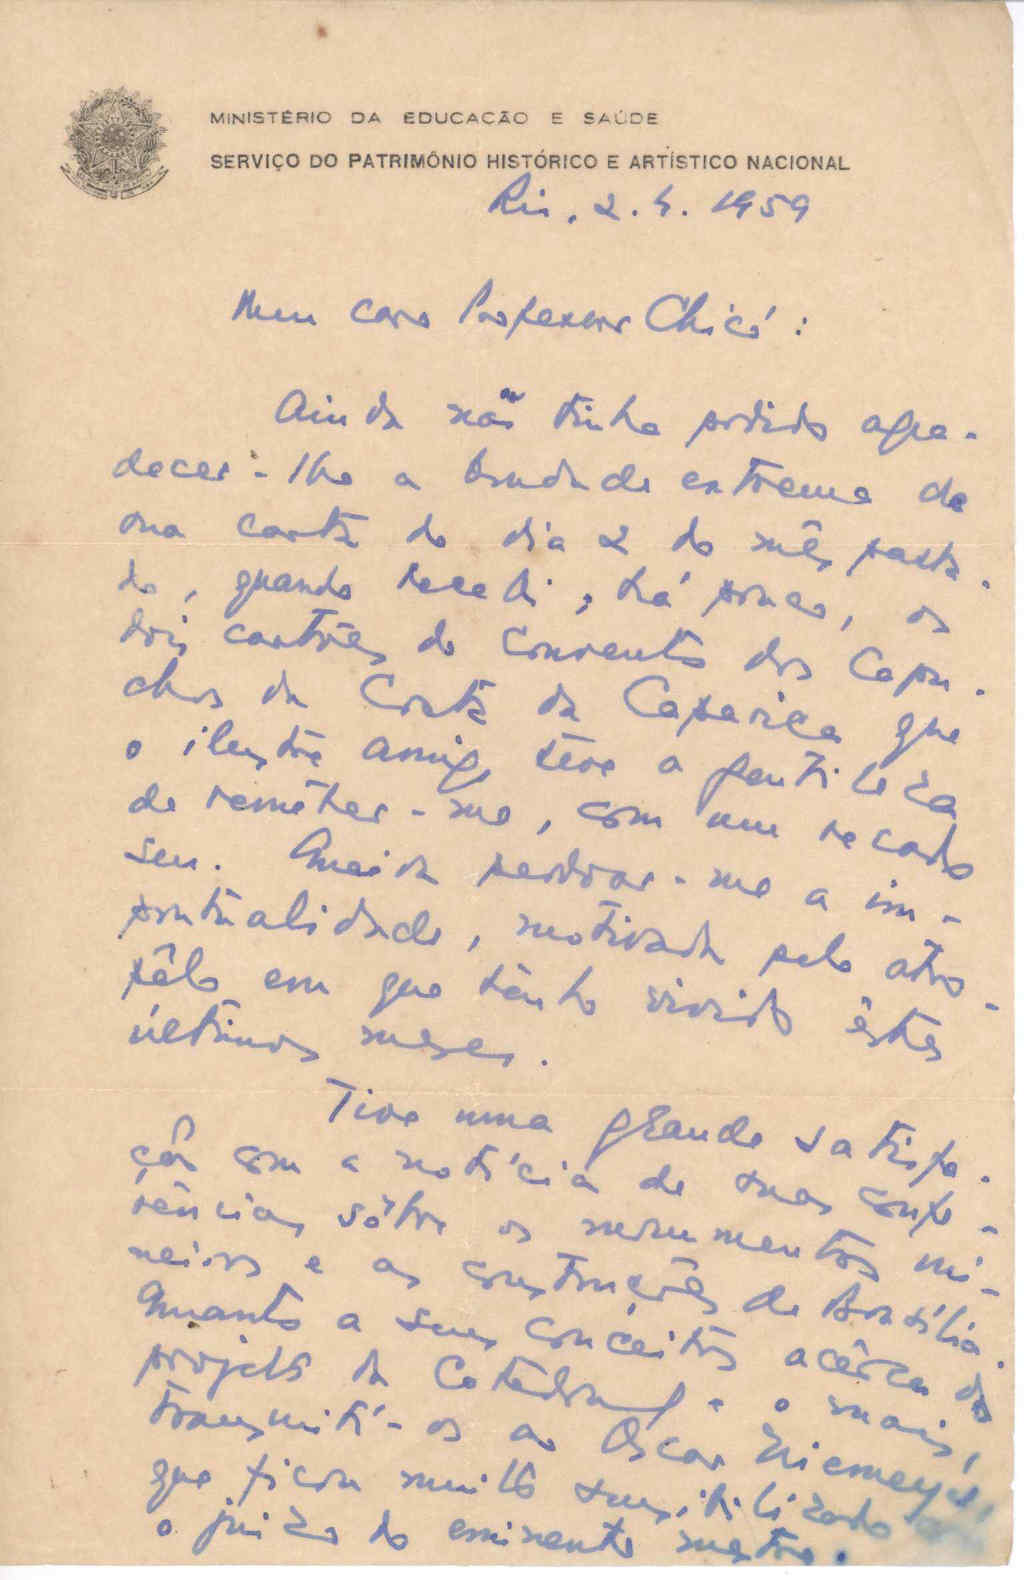 MINISTÉRIO DA EDUCAÇÃO E SAÚDE
SERVIÇO DO PATRIMÔNIO HISTÓRICO E ARTÍSTICO NACIONAL
Rio, 2.4.1959
Meu caro Professor Chicó:
Ainda não tinha podido agra-
decer-lhe a bondade extrema de
sua carta do dia 2 do mês passa-
do, quando recebi, há pouco, os
dois cartões do Convento dos Capu-
chos da Costa da Caparica que
o ilustre amigo teve a gentileza
de remeter-me, com um recado
seu. Queira perdoar-me a im-
pontualidade, motivada pelo atro-
pêlo em que tenho vivido êstes
últimos meses.
Tive uma grande satisfa-
ção com a notícia de suas confe-
rências sôbre os monumentos mi-
neiros e as construções de Brasília.
Quanto a seus conceitos acêrca do
projeto da Catedral e o mais,
transmiti-os ao Oscar Niemeyer,
que ficou muito sensibilizado com
o juízo do eminente mestre.